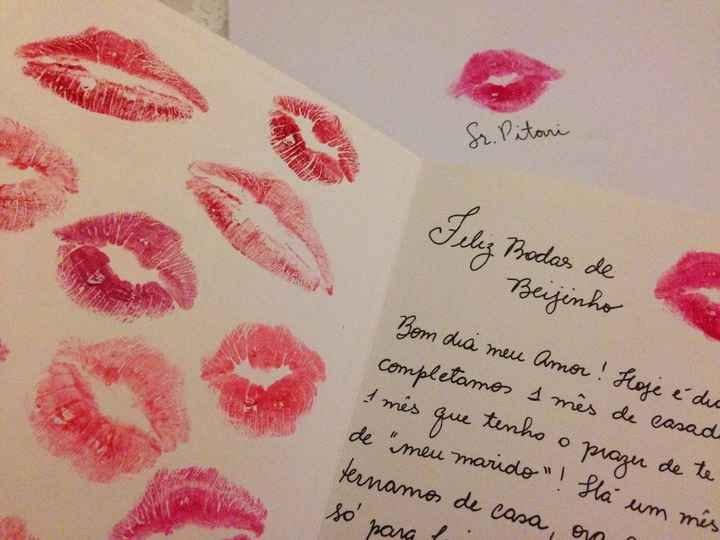 Sr. Pitorri
Feliz Bodas de
Beijinho
Bom diá meu Amor! Hoje é dia
completamos 1 mês de casad
1 mês que tenho o prazer de te
de "meu marido"! Há um mês
ternamos de casa, ora
só para